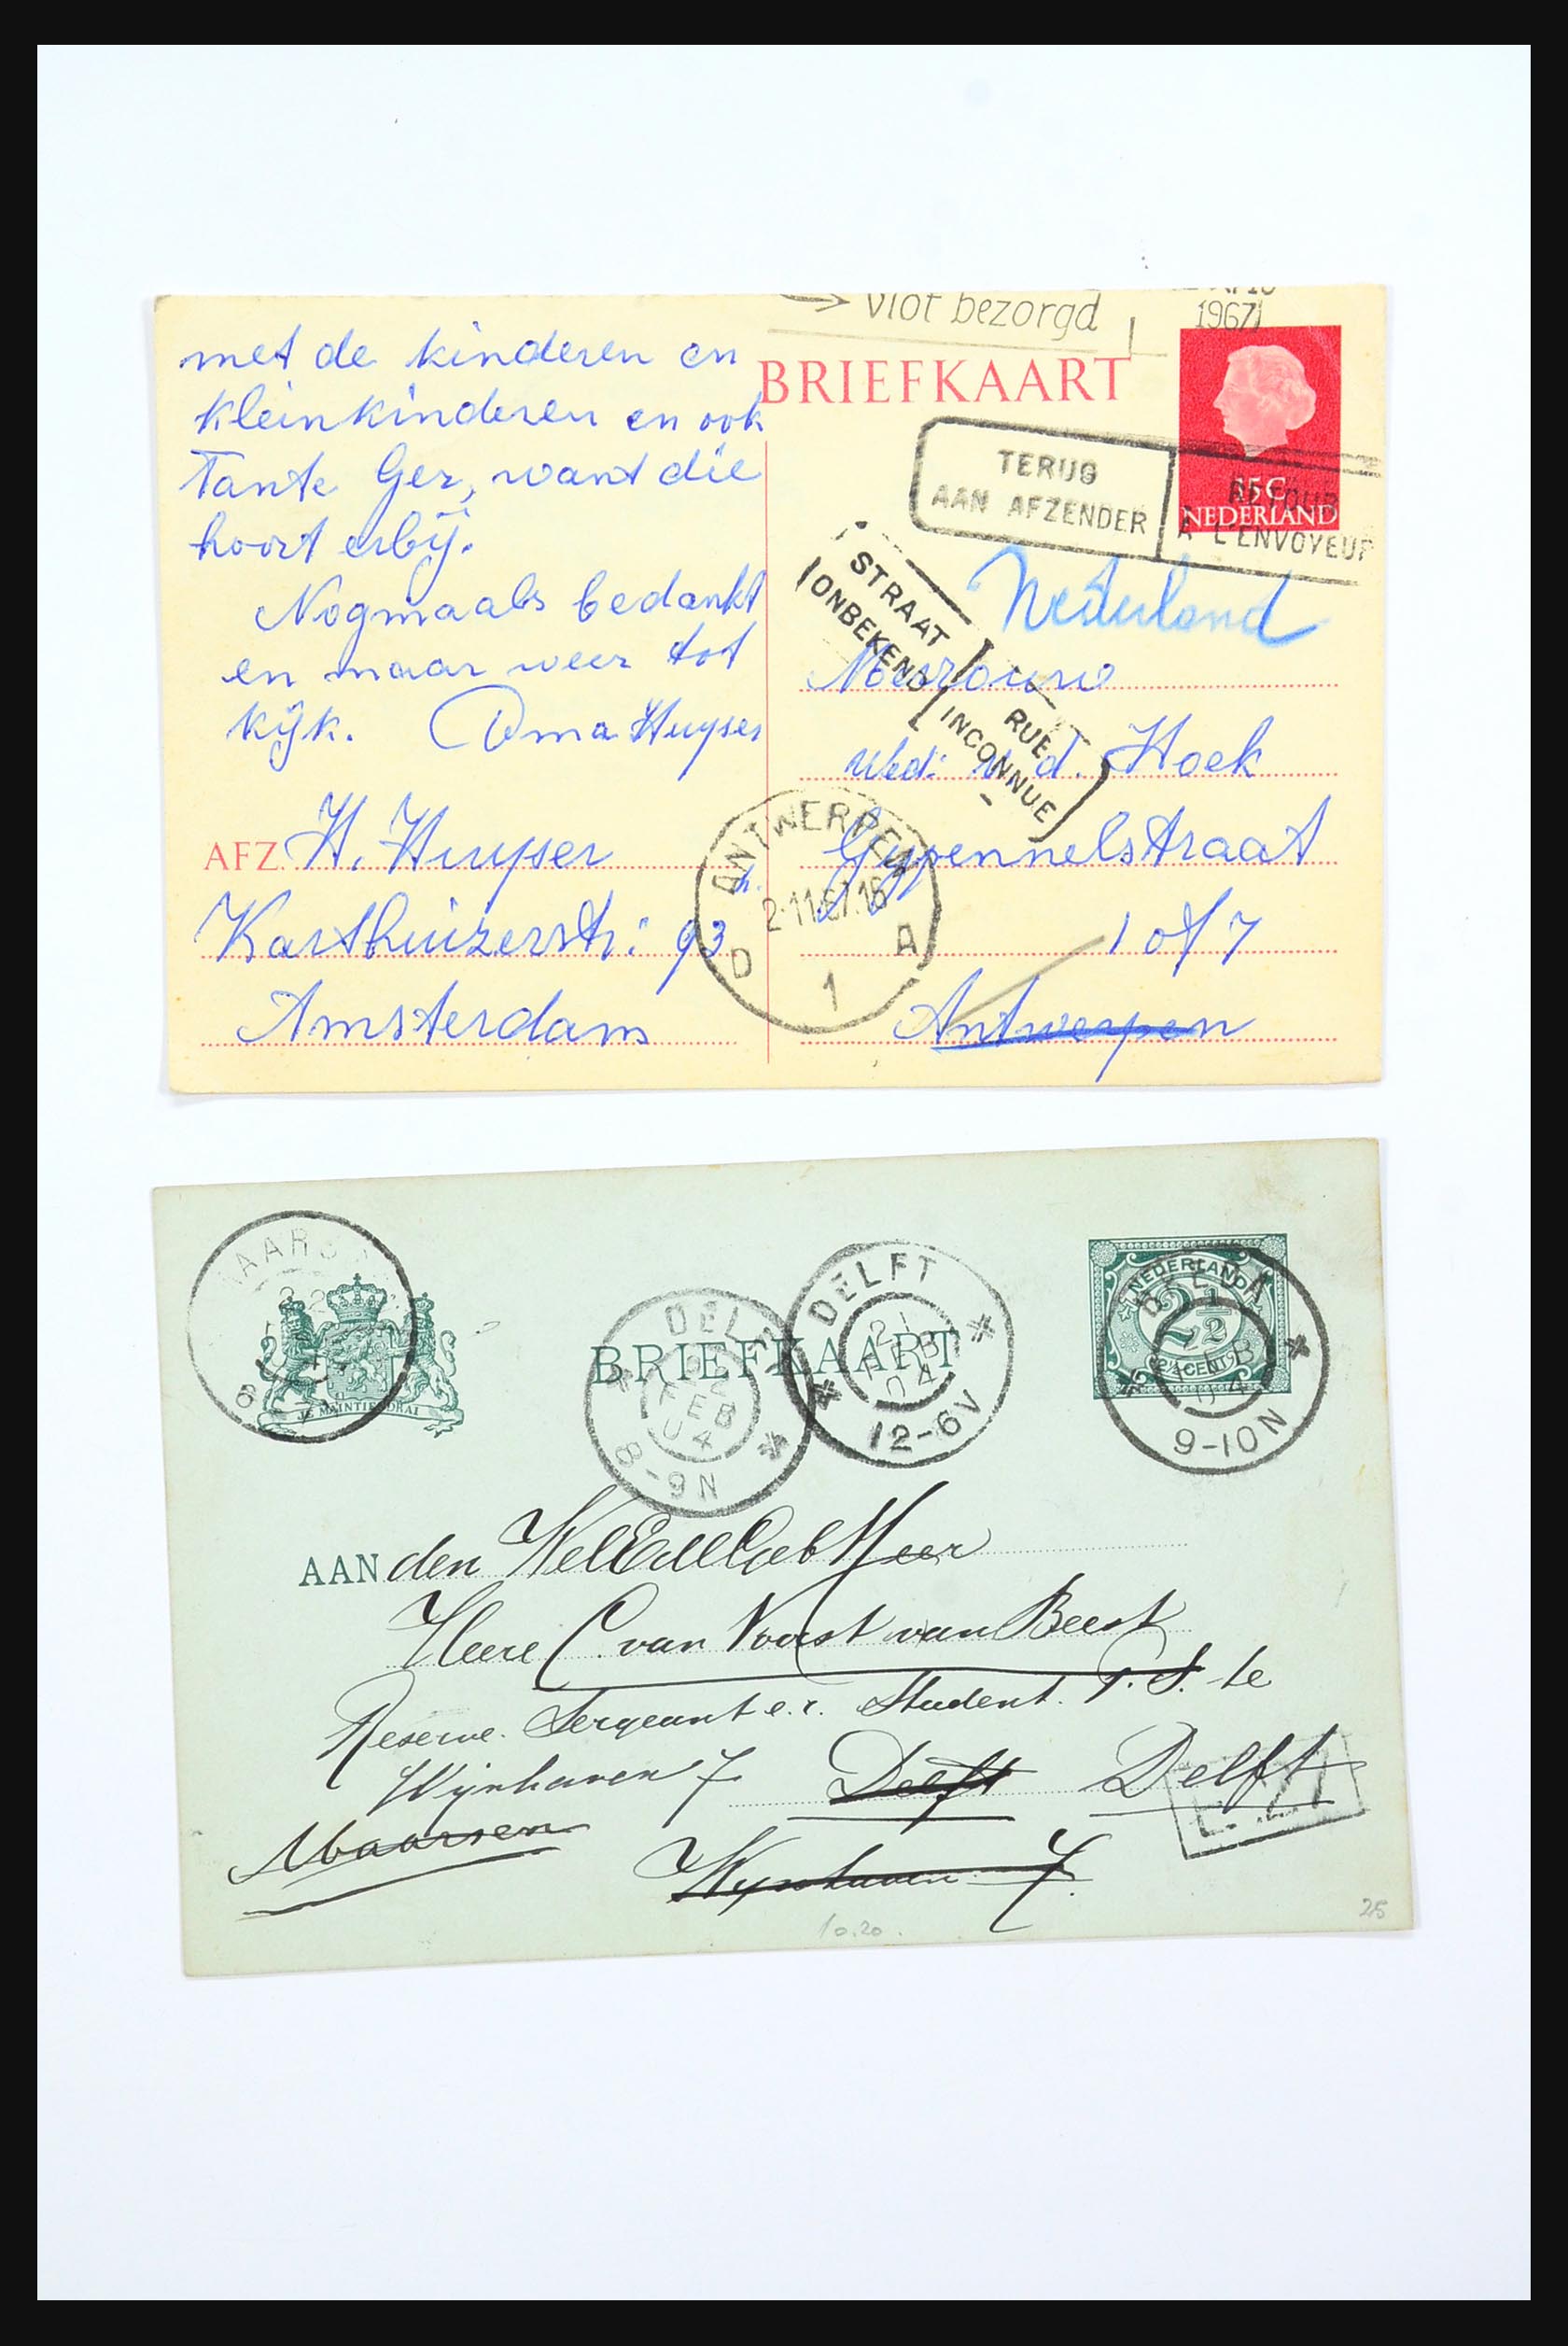 vlot bezorgd
1967
met de kinderen en
kleinkinderen en ook
Tante Ger, want die
hoort erbij.
Nogmaals bedankt
en maar weer tot
kijk. Oma Huyser
BRIEFKAART
TERUG
AAN AFZENDER
RETOUR
A L'ENVOYEUR
15 C
NEDERLAND
Nederland
STRAAT
ONBEKEND
RUE
INCONNUE
Mevrouw
Wed: v d. Hoek
Gypennelstraat
1 of 7
Antwerpen
AFZ. H. Huyser
Karthuizerstr: 93
Amsterdam
ANTWERPEN
2-11.67.16
D 1 A
JE MAINTIENDRAI
BRIEFKAART
DELFT
FEB
04
8-9N
DELFT
21
FEB
04
12-6V
NEDERLAND
2 1/2
CENT
BREDA
9-10N
AAN den WelEdelGeb Heer
Heere C. van Voorst van Beest
Reserve Sergeant e.r. Student. P. S. te
Wijnhaven 7 Delft Delft
Maarsen
Wijnhaven 7.
10.20.
25